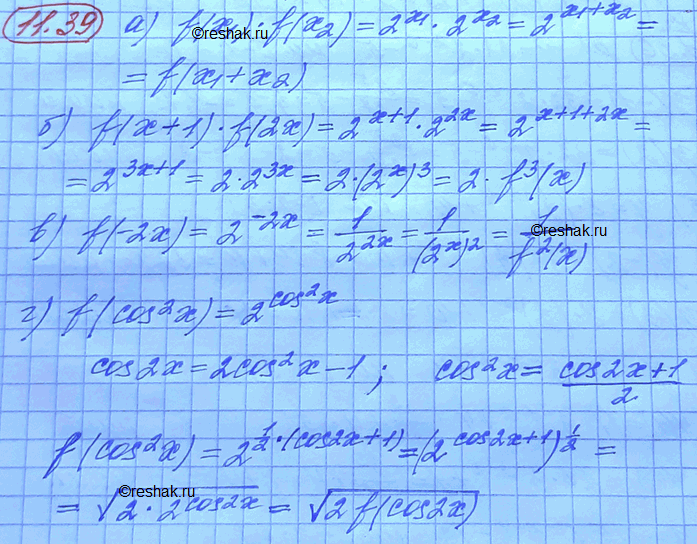 11.39 а) f(x₁)·f(x₂) = 2^x₁ · 2^x₂ = 2^(x₁+x₂) =
©reshak.ru
= f(x₁+x₂)
б) f(x+1)·f(2x) = 2^(x+1) · 2^(2x) = 2^(x+1+2x) =
= 2^(3x+1) = 2·2^(3x) = 2·(2^x)^3 = 2·f³(x)
в) f(-2x) = 2^(-2x) = 1/2^(2x) = 1/(2^x)^2 = 1/f²(x)
©reshak.ru
г) f(cos²x) = 2^(cos²x)
cos2x = 2cos²x - 1; cos²x = (cos2x+1)/2
f(cos²x) = 2^(1/2·(cos2x+1)) = (2^(cos2x+1))^(1/2) =
©reshak.ru
= √(2·2^(cos2x)) = √(2f(cos2x))